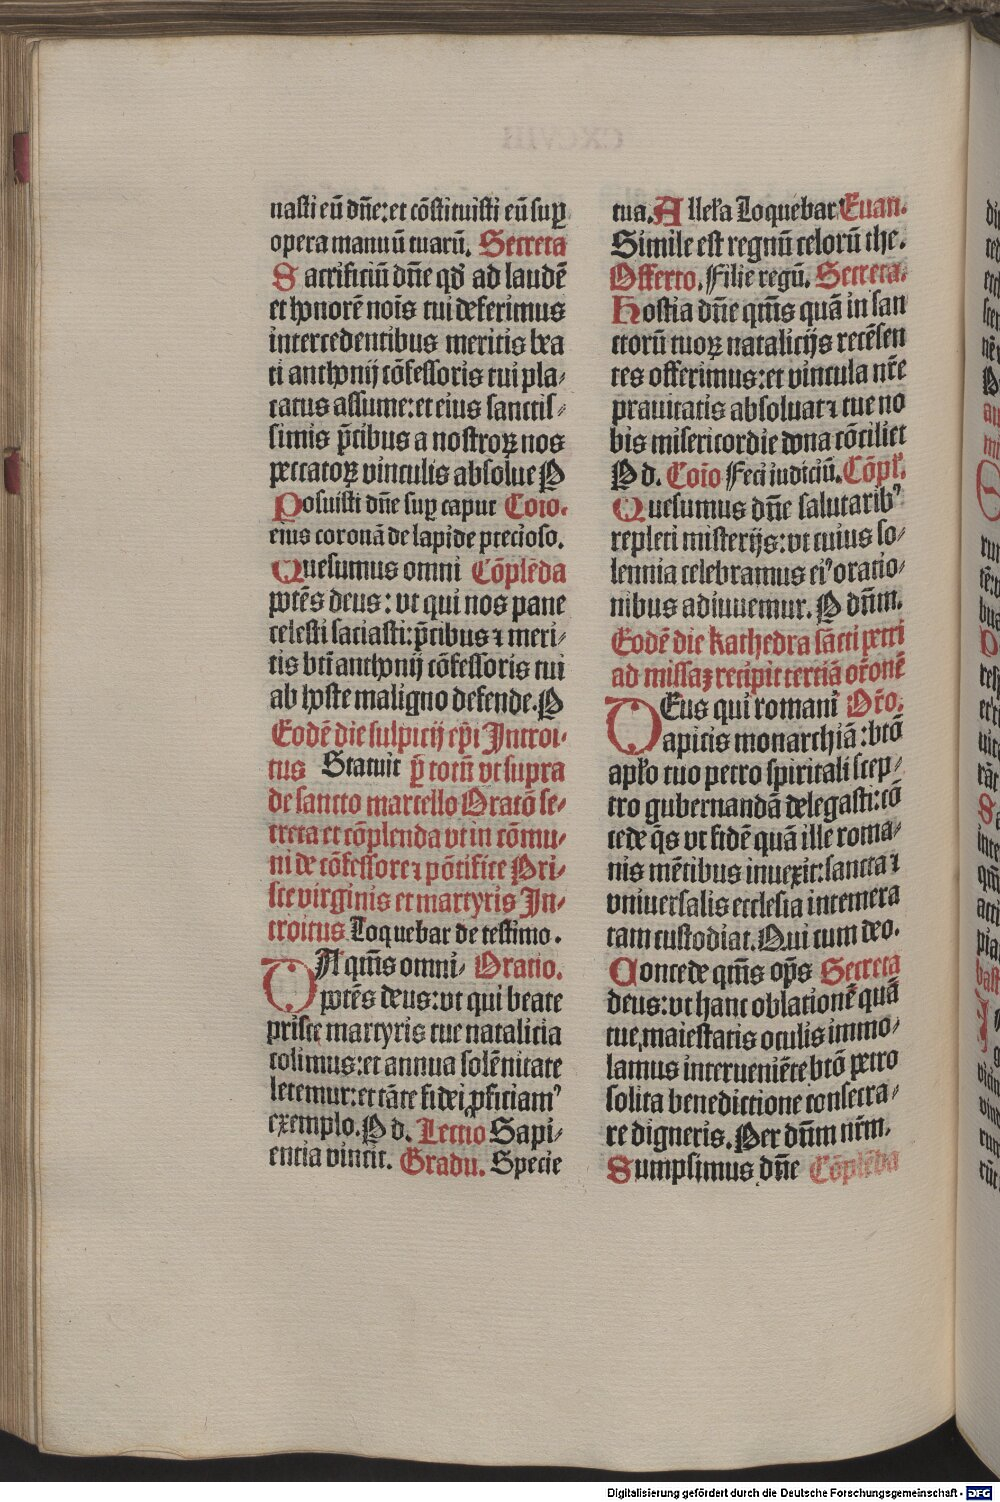 nasti eū dn̄e: et cōstituisti eū suꝑ
opera manuū tuarū. Secreta
Sacrificiū dn̄e qd̓ ad laudē
et honorē nois̄ tui deferimus
intercedentibus meritis bea
ti anthonij cōfessoris tui pla⸗
catus assume: et eius sanctis⸗
simis p̄cibus a nostroꝝ nos
peccatoꝝ vinculis absolue P
Posuisti dn̄e suꝑ caput Coīo.
eius coronā de lapide precioso.
Quesumus omni Cōplēda
potēs deus: vt qui nos pane
celesti saciasti: p̄cibus ⁊ meri⸗
tis btī anthonij cōfessoris tui
ab hoste maligno defende. P
Eodē die sulpicij ep̄i Introi⸗
tus Statuit p̄ totū vt supra
de sancto marcello Oratō se⸗
creta et cōplenda vt in cōmu⸗
ni de cōfessore ⁊ pōtifice Pri⸗
sce virginis et martyris In⸗
troitus Loquebar de testimo.
DA qm̄s omni⸗ Oratio.
potēs deus: vt qui beate
prisce martyris tue natalicia
colimus: et annua solēnitate
letemur: et tāte fidei ꝓficiamꝰ
exemplo. P d. Lectio Sapi⸗
entia vincīt. Gradu. Specie
tua. Alleła Loquebar Euan.
Simile est regnū celorū the.
Offerto. Filie regū. Secreta.
Hostia dn̄e qm̄s quā in san
ctorū tuoꝝ natalicijs recēsen
tes offerimus: et vincula nr̄e
prauitatis absoluat ⁊ tue no
bis misericordie dona cōciliet
P d. Coīo Feci iudiciū. Cōpł.
Quesumus dn̄e salutaribꝰ
repleti misterijs: vt cuius so⸗
lennia celebramus eiꝰ oratio⸗
nibus adiuuemur. P dn̄m.
Eodē die kathedra sācti petri
ad missaꝫ recipit terciā or̄onē
DEus qui romani Or̄o.
apicis monarchiā: btō
apło tuo petro spiritali scep⸗
tro gubernandā delegasti: cō
cede q̄s vt fidē quā ille roma⸗
nis mētibus inuexit: sancta ⁊
vniuersalis ecclesia intemera
tam custodiat. Qui cum deo.
Concede qm̄s op̄s Secreta
deus: vt hanc oblationē quā
tue maiestatis oculis immo⸗
lamus interueniēte btō petro
solita benedictione consecra⸗
re digneris. Per dn̄m nr̄m.
Sumpsimus dn̄e Cōplēda
Digitalisierung gefördert durch die Deutsche Forschungsgemeinschaft - DFG